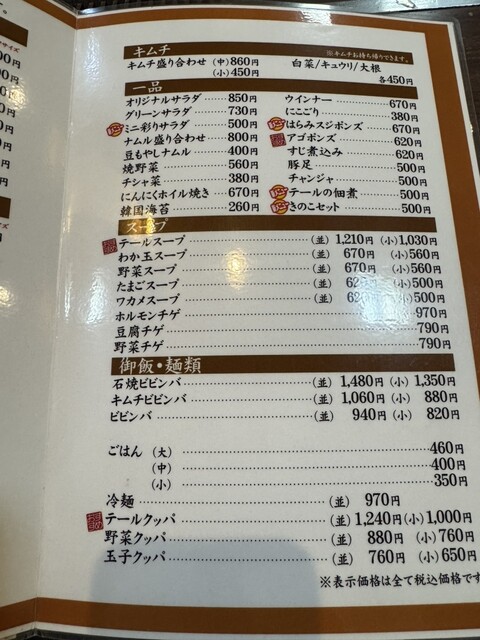 キムチ
※キムチお持ち帰りできます。
キムチ盛り合わせ (中) 860円
(小) 450円
白菜/キュウリ/大根
各450円
一品
オリジナルサラダ……850円
グリーンサラダ……730円
ミニ彩りサラダ……500円
ナムル盛り合わせ……800円
豆もやしナムル……400円
焼野菜……560円
チシャ菜……380円
にんにくホイル焼き……670円
韓国海苔……260円
ウインナー……670円
にこごり……380円
はらみスジポンズ……670円
アゴポンズ……620円
すじ煮込み……620円
豚足……500円
チャンジャ……500円
テールの佃煮……500円
きのこセット……500円
スープ
テールスープ……(並) 1,210円 (小) 1,030円
わか玉スープ……(並) 670円 (小) 560円
野菜スープ……(並) 670円 (小) 560円
たまごスープ……(並) 620円 (小) 500円
ワカメスープ……(並) 620円 (小) 500円
ホルモンチゲ……970円
豆腐チゲ……790円
野菜チゲ……790円
御飯・麺類
石焼ビビンバ……(並) 1,480円 (小) 1,350円
キムチビビンバ……(並) 1,060円 (小) 880円
ビビンバ……(並) 940円 (小) 820円
ごはん (大)……460円
(中)……400円
(小)……350円
冷麺……(並) 970円
テールクッパ……(並) 1,240円 (小) 1,000円
野菜クッパ……(並) 880円 (小) 760円
玉子クッパ……(並) 760円 (小) 650円
※表示価格は全て税込価格です